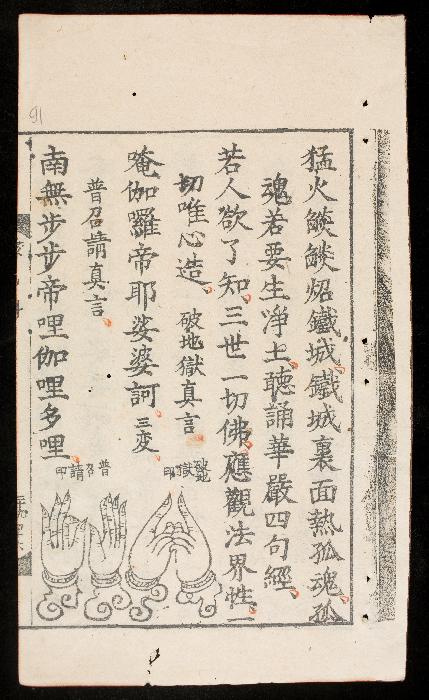 猛火燄燄炤鐵城鐵城裏面熱孤魂孤
魂若要生淨土聽誦華嚴四句經
若人欲了知三世一切佛應觀法界性一
切唯心造 破地獄真言
唵伽囉帝耶娑婆訶 三变
普召請真言
南無步步帝哩伽哩多哩
破地獄印
普召請印
91